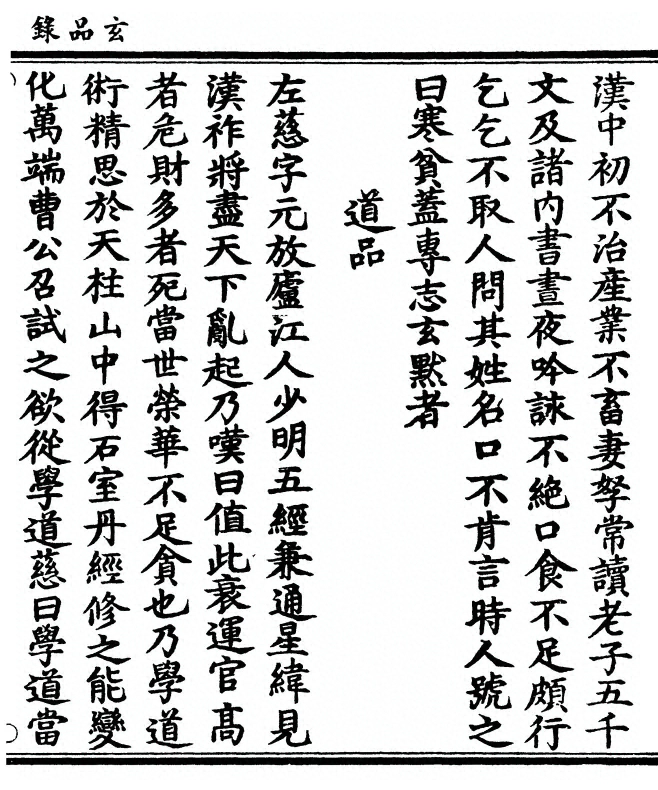 玄品錄
漢中初不治産業不畜妻孥常讀老子五千
文及諸內書晝夜吟詠不絶口食不足頗行
乞乞不取人問其姓名口不肯言時人號之
曰寒貧蓋專志玄默者
道品
左慈字元放廬江人少明五經兼通星緯見
漢祚將盡天下亂起乃嘆曰值此衰運官高
者危財多者死當世榮華不足貪也乃學道
術精思於天柱山中得石室丹經修之能變
化萬端曹公召試之欲從學道慈曰學道當